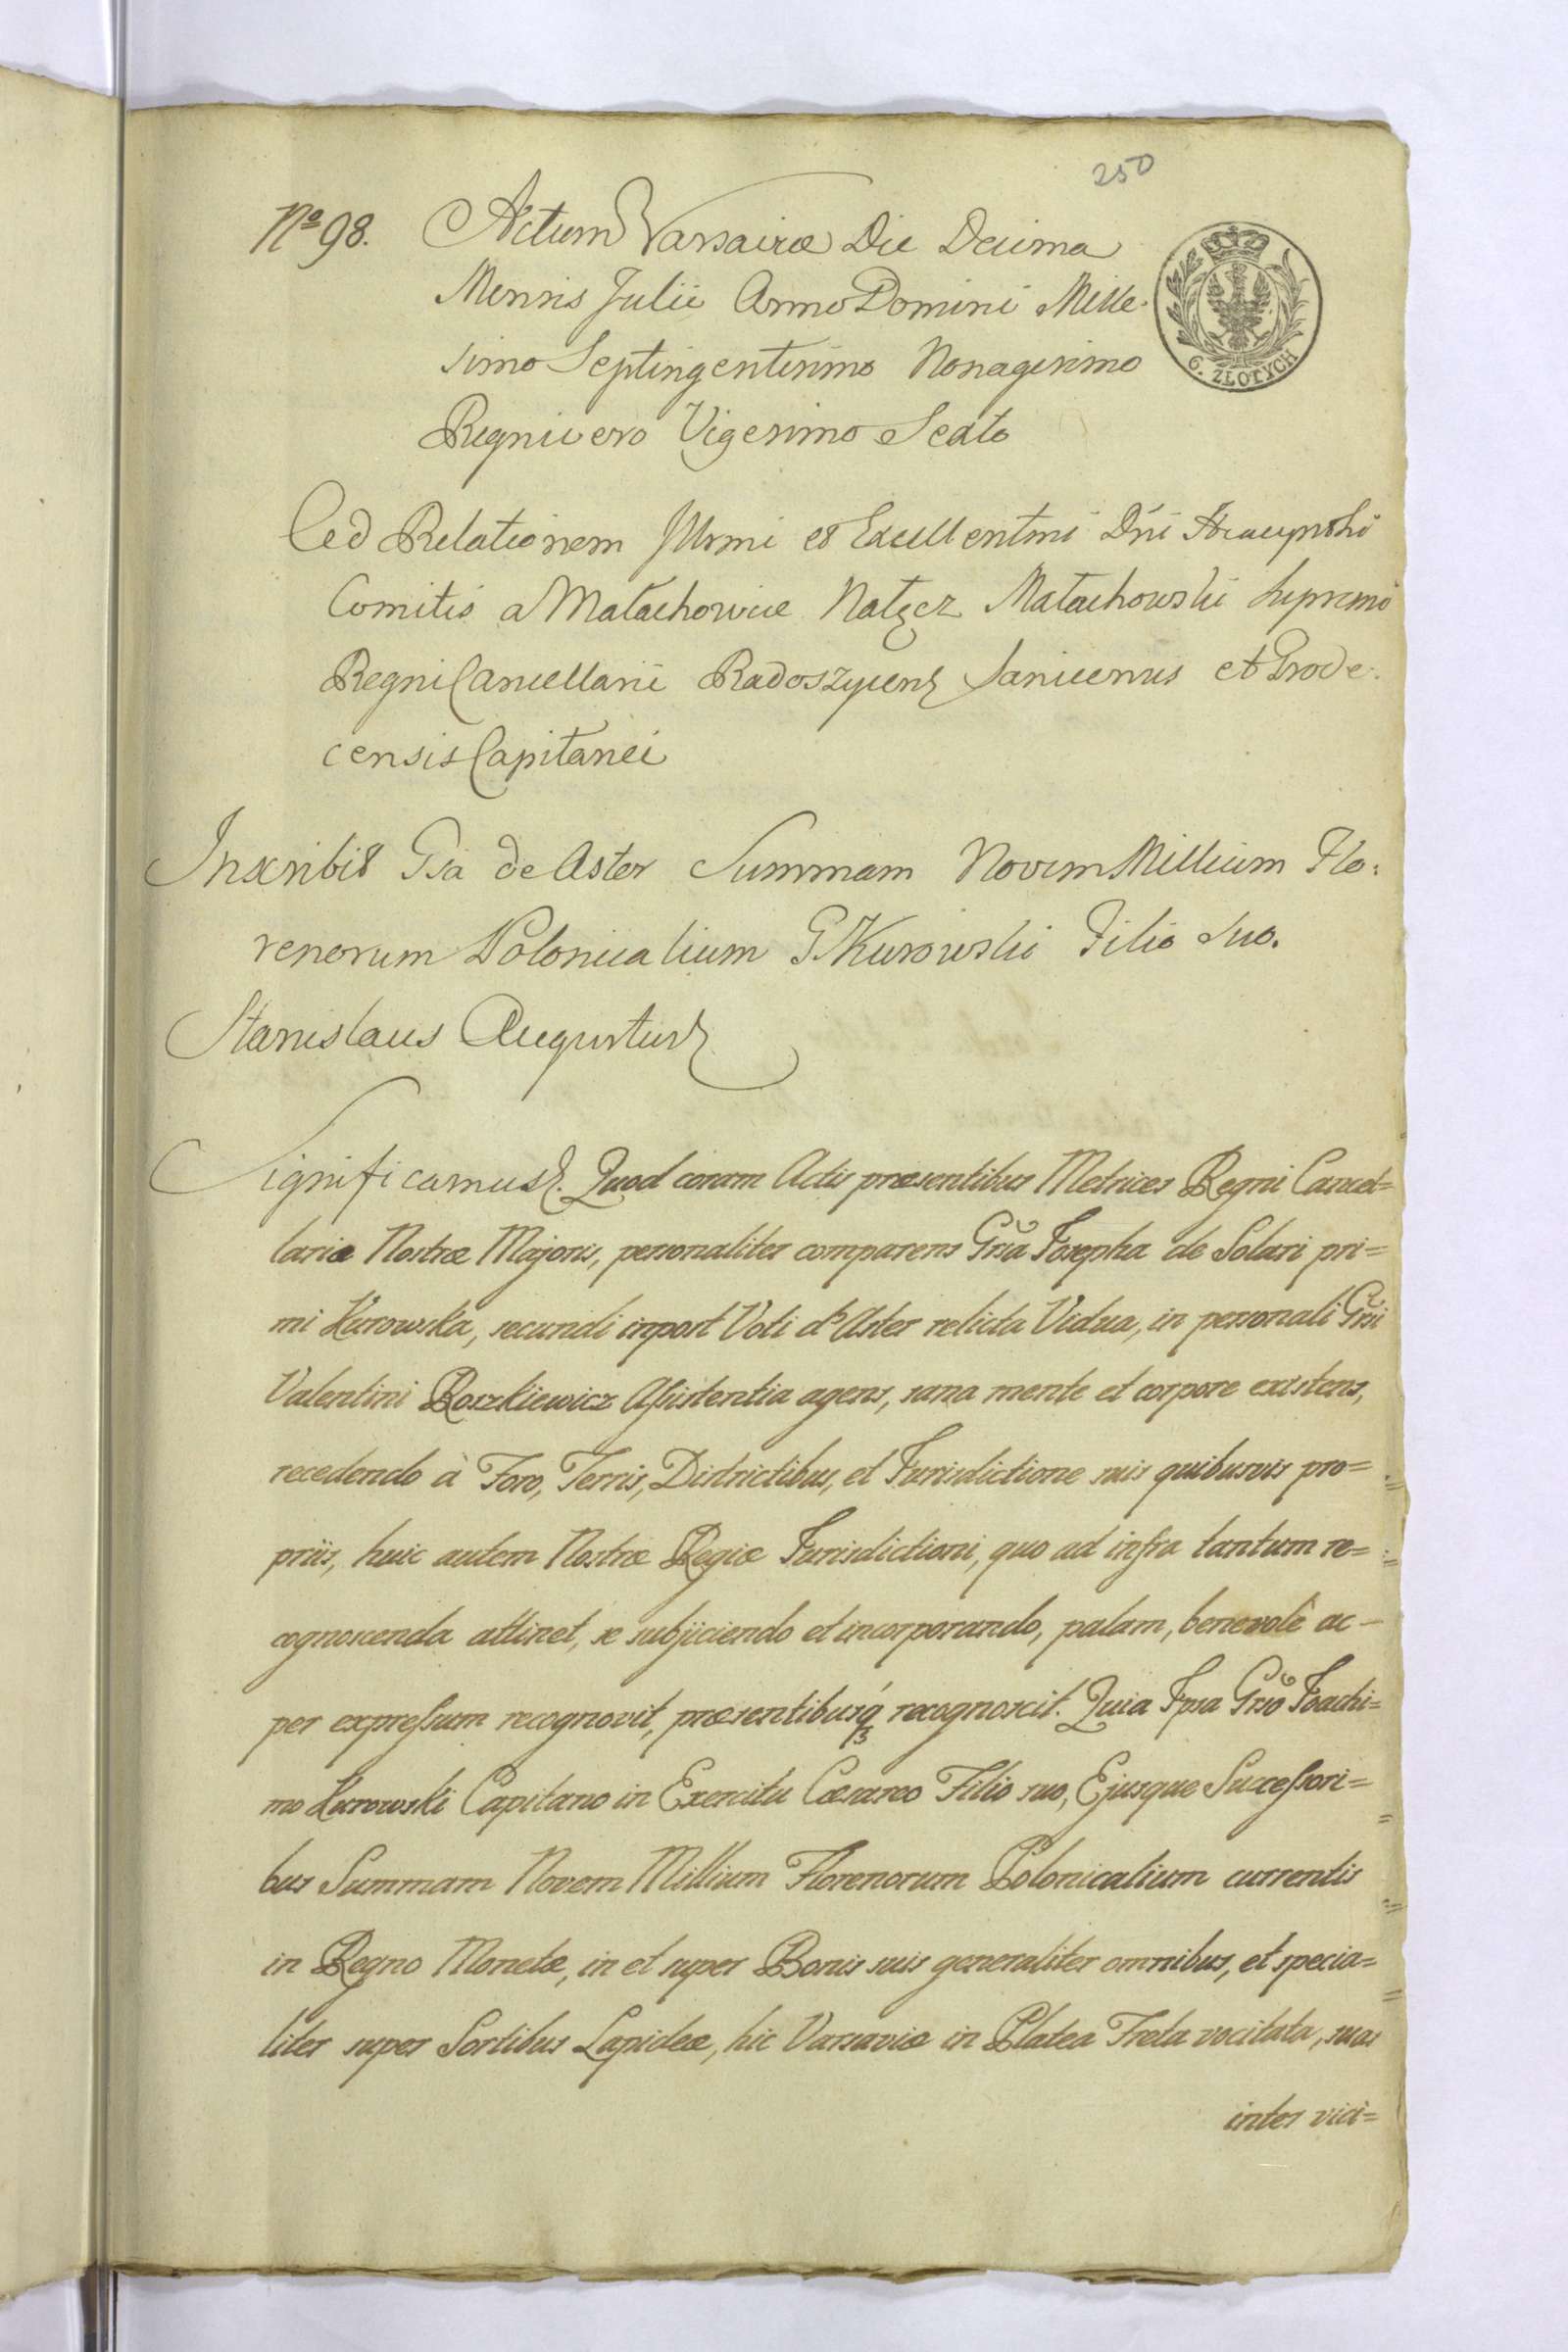 250
Nº 98. Actum Varsaviæ Die Decima
Mensis Julii Anno Domini Mille-
simo Septingentesimo Nonagesimo
Regni vero Vigesimo Sexto
6. ZŁOTYCH
Ad Relationem Illrmi et Excellentmi Dñi Hyacynthi
Comitis a Małachowice Nałęcz Małachowski Supremi
Regni Cancellarii Radoszycens Sanicensis et Grode-
censis Capitanei
Inscribit Gsa de Aster Summam Novem Millium Flo-
renorum Polonicalium G. Kurowski Filio suo.
Stanislaus Augustus
Significamus. Quod coram Actis præsentibus Metrices Regni Cancel=
lariæ Nostræ Majoris, personaliter comparens Grsa Josepha de Solari pri=
mi Kurowska, secundi inpost Voti d'Aster relicta Vidua, in personali Grsi
Valentini Roszkiewicz Assistentia agens, sana mente et corpore existens,
recedendo à Foro, Terris, Districtibus, et Jurisdictione suis quibusvis pro=
priis, huic autem Nostræ Regiæ Jurisdictioni, quo ad infra tantum re=
cognoscenda attinet, se subjiciendo et incorporando, palam, benevolè ac-
per expressum recognovit, præsentibusq recognoscit. Quia Ipsa Grso Joachi=
mo Kurowski Capitano in Exercitu Cæsareo Filio suo, Ejusque Successori=
bus Summam Novem Millium Florenorum Polonicalium currentis
in Regno Monetæ, in et super Bonis suis generaliter omnibus, et specia=
liter super Sortibus Lapideæ, hic Varsaviæ in Platea Freta vocitata, suas
inter vici=